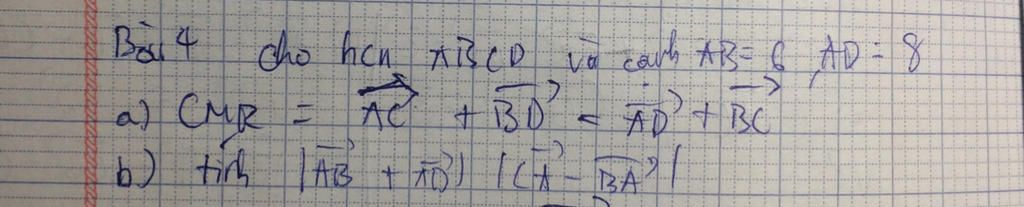 Bài 4 cho hcn ABCD và cạnh AB = 6, AD = 8
a) CMR = \overrightarrow{AC} + \overrightarrow{BD} = \overrightarrow{AD} + \overrightarrow{BC}
b) tính |\overrightarrow{AB} + \overrightarrow{AD}| |\overrightarrow{CA} - \overrightarrow{BA}|